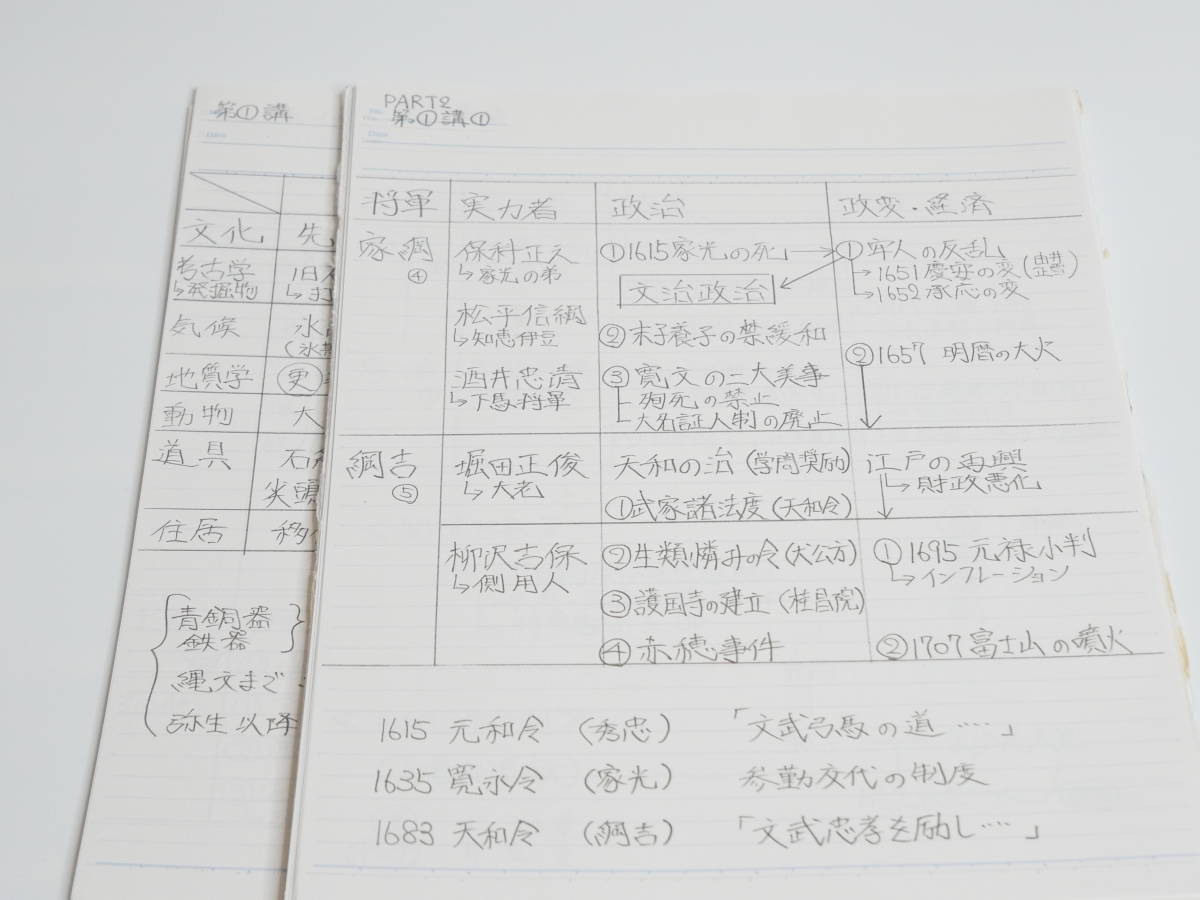 第①講
文化 先
考古学 旧
↳発掘物 ↳打
気候 氷
(氷
地質学 更
動物 大
道具 石
尖頭
住居 移
青銅器
鉄器
縄文まで
弥生以降
PART2
第①講①
将軍 実力者 政治 政変・経済
家綱 ④
保科正之
↳家光の弟
松平信綱
↳知恵伊豆
酒井忠清
↳下馬将軍
①1615家光の死
文治政治
②末子養子の禁緩和
③寛文の二大美事
殉死の禁止
大名証人制の廃止
①牢人の反乱
→1651慶安の変(由井)
→1652承応の変
②1657 明暦の大火
綱吉 ⑤
堀田正俊
↳大老
天和の治(学問奨励)
①武家諸法度(天和令)
江戸の再興
↳財政悪化
柳沢吉保
↳側用人
②生類憐みの令(犬公方)
③護国寺の建立(桂昌院)
④赤穂事件
①1695 元禄小判
↳インフレーション
②1707富士山の噴火
1615 元和令 (秀忠) 「文武弓馬の道‥‥」
1635 寛永令 (家光) 参勤交代の制度
1683 天和令 (綱吉) 「文武忠孝を励し‥‥」